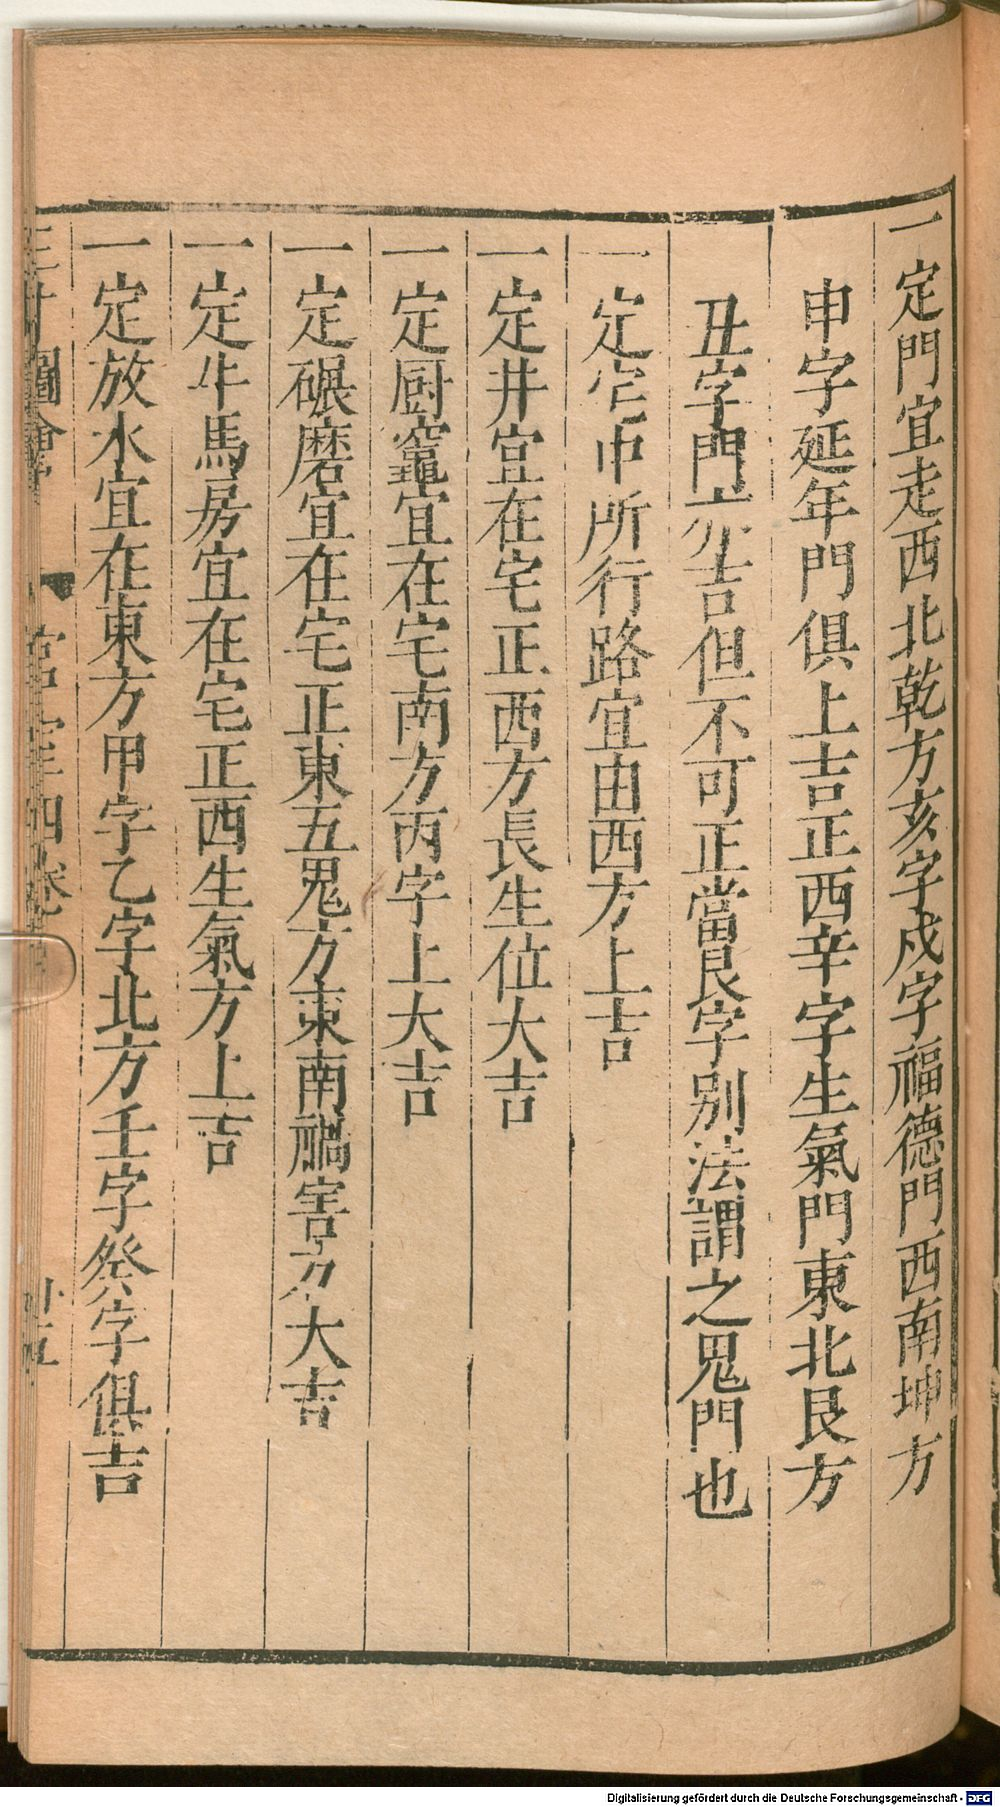 一定門宜走西北乾方亥字戍字福德門西南坤方
申字延年門俱上吉正西辛字生氣門東北艮方
丑字門亦吉但不可正當艮字別法謂之鬼門也
一定宅中所行路宜由西方上吉
一定井宜在宅正西方長生位大吉
一定厨竈宜在宅南方丙字上大吉
一定碾磨宜在宅正東五鬼方東南禍害方大吉
一定牛馬房宜在宅正西生氣方上吉
一定放水宜在東方甲字乙字北方壬字癸字俱吉
三才圖會 宮室四卷 卅五
Digitalisierung gefördert durch die Deutsche Forschungsgemeinschaft - DFG